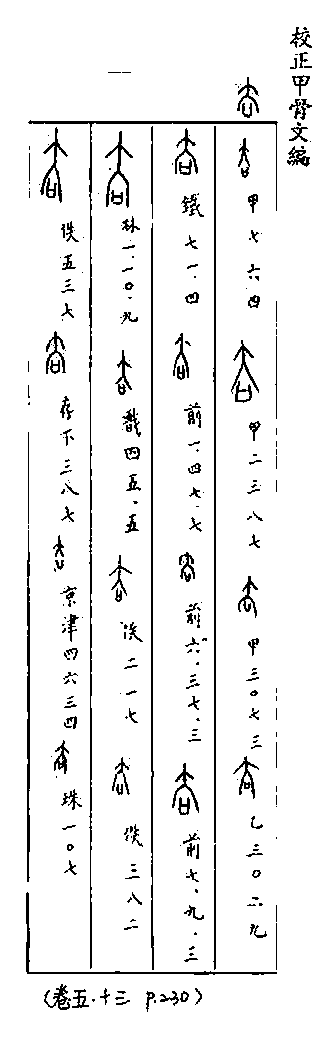 校正甲骨文編
甲七六四
甲二三八七
甲三〇七三
乙三〇二九
鐵七一.四
前一.四七.七
前六.三七.三
前七.九.三
林一.一〇.九
戩四五.五
佚二一七
佚三八二
佚五三七
存下三八七
京津四六三四
珠一〇七
(卷五.十三 P.230)